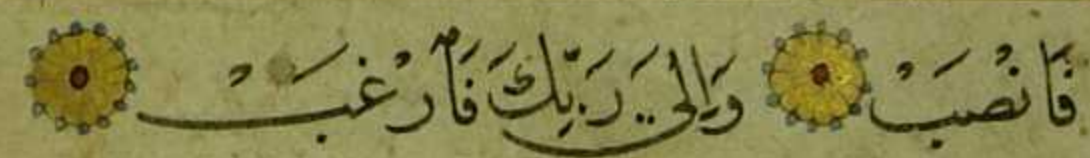 فَانْصَبْ وَإِلَىٰ رَبِّكَ فَٱرْغَبْ